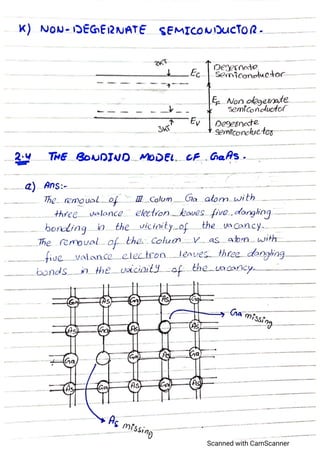 K) NON-DEGERNATE SEMICONDUCTOR.
3KT
Ec
Degernate
Semiconductor
EF Non degernate
semiconductor
3KT
Ev
Degernate
semiconductor
2.4 THE BONDIND MODEL OF GaAs.
a) Ans:-
The removal of III Colum Ga atom with
three valance electron leaves five dangling
bonding in the vicinity of the vacancy.
The removal of the Colum V as atom with
five valance electron leaves three dangling
bonds in the vicinity of the vacancy.
Ga As Ga As
Ga missing
As Ga As
Ga As Ga
As Ga As Ga
As missing
Scanned with CamScanner